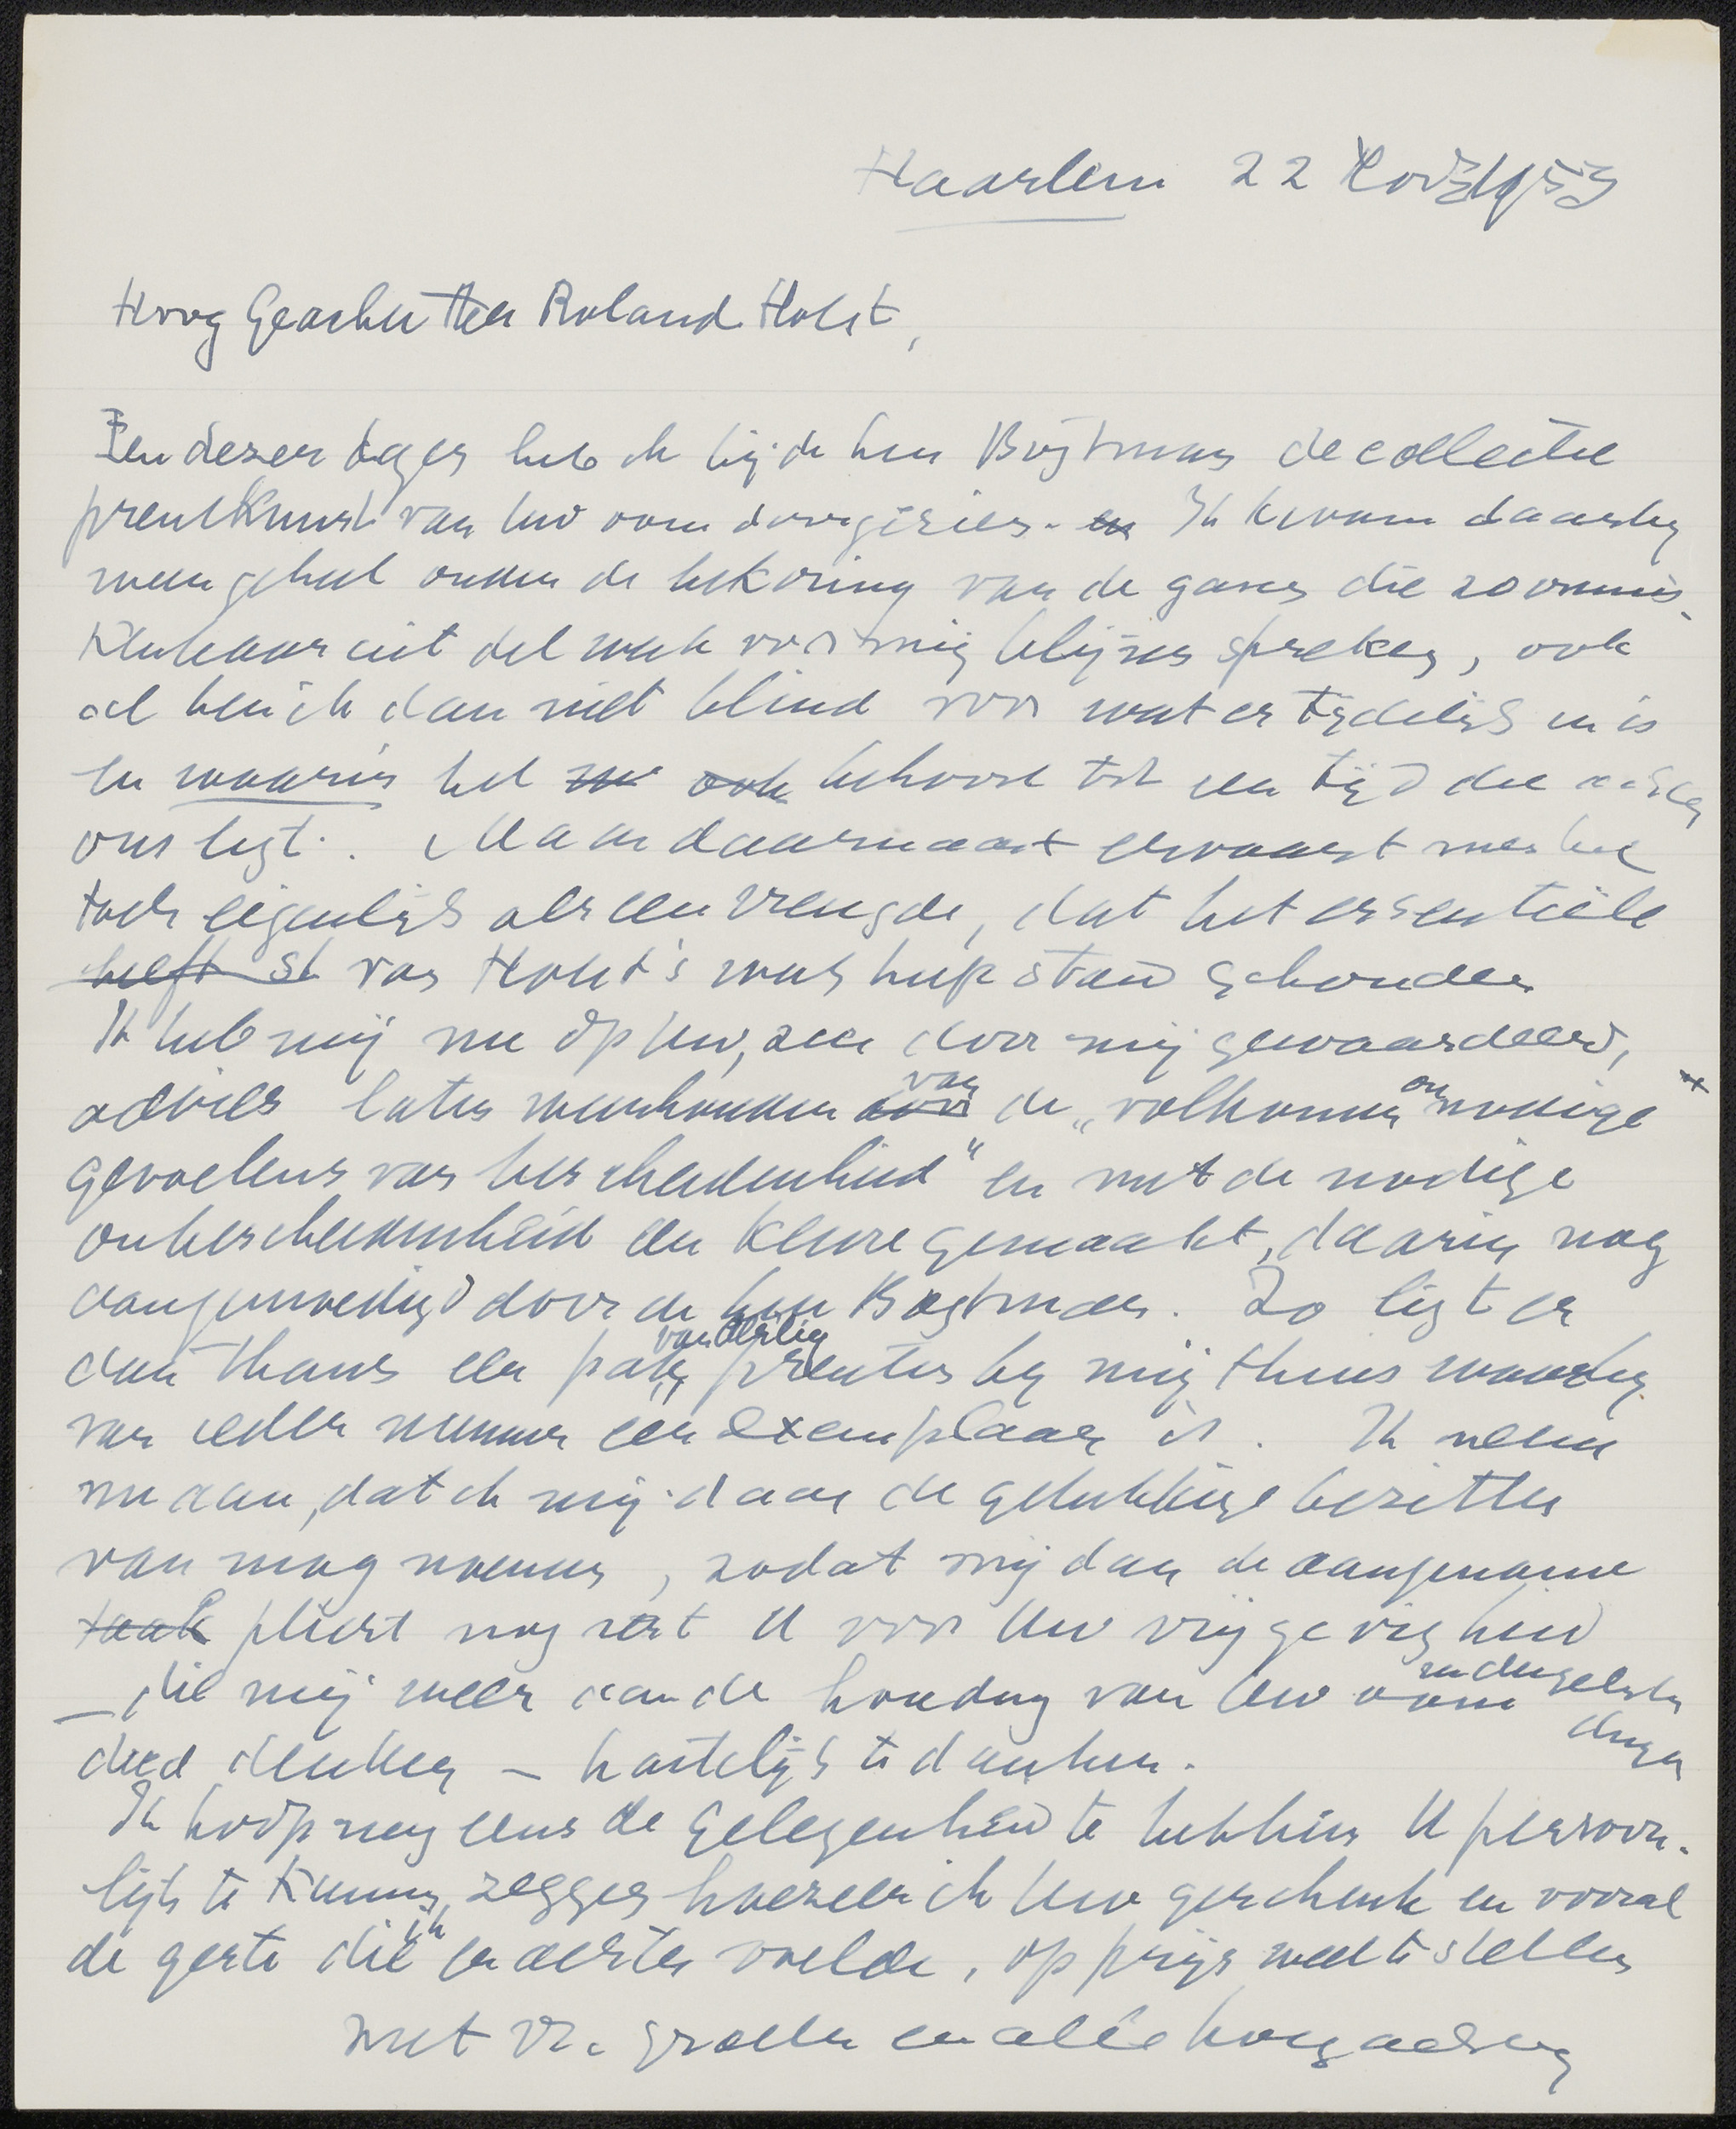 Haarlem 22 Nov 1953
Hoog Geachte Heer Roland Holst,
Een dezer dagen heb ik bij de heer Buytmans de collectie
prentkunst van Uw oom doorgezien. Ik kwam daarbij
weer geheel onder de bekoring van de gaves die zo onmis-
kenbaar uit dat werk voor mij blijven spreken, ook
al ben ik dan niet blind voor wat er tijdelijk in is
en waarin het behoort tot een tijd die achter
ons ligt. Maar daarnaast ervaart men het
toch eigenlijk als een vreugde, dat het essentiële
van Holst's werk heeft stand gehouden
Ik heb mij nu op Uw, zeer door mij gewaardeerd,
advies laten weerhouden van de „volkomen onnodige
gevoelens van bescheidenheid" en met de nodige
onbescheidenheid een keuze gemaakt, daarin nog
aangemoedigd door de heer Buytmans. Zo ligt er
dan thans een pak prenten bij mij thuis waarbij
van ieder nummer een exemplaar is. Ik neem
nu aan, dat ik mij daar de gelukkige bezitter
van mag noemen, zodat mij dan de aangename
taak plicht nog rest U voor Uw vrijgevigheid
– die mij weer aan de houding van Uw oom in dergelijke dingen
deed denken – hartelijk te danken.
Ik hoop nog eens de gelegenheid te hebben U persoon-
lijk te kunnen zeggen hoezeer ik Uw geschenk en vooral
de geste die ik er achter voelde, op prijs weet te stellen
met vr. groeten en alle hoogachting